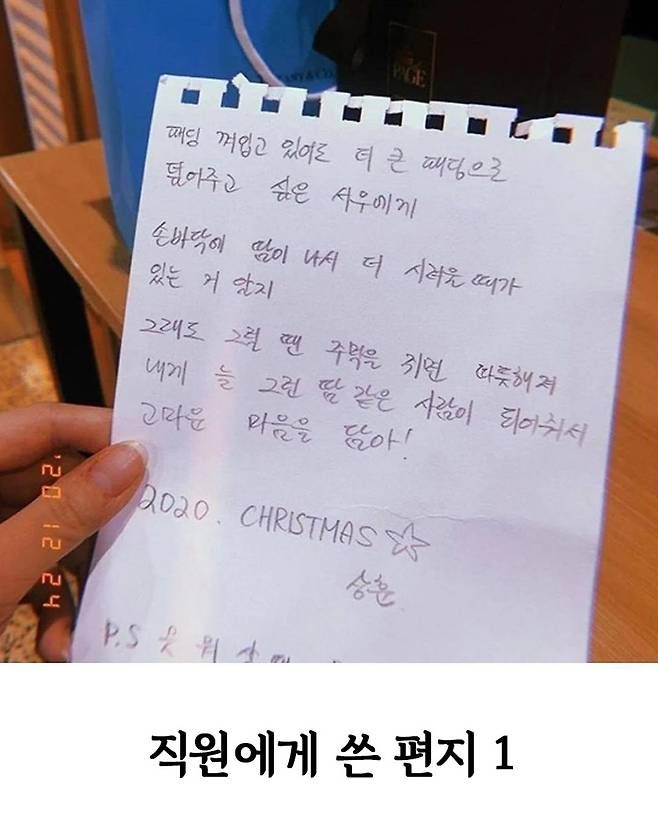 & CO.
PAGE
패딩 껴입고 있어도 더 큰 패딩으로
덮어주고 싶은 사우에게
손바닥에 땀이 나서 더 시려울 때가
있는 거 알지
그래도 그럴 땐 주먹을 쥐면 따듯해져
내게 늘 그런 땀 같은 사람이 되어줘서
고마운 마음을 담아!
2020. CHRISTMAS
상훈
P.S 옷
'20 12 24
직원에게 쓴 편지 1